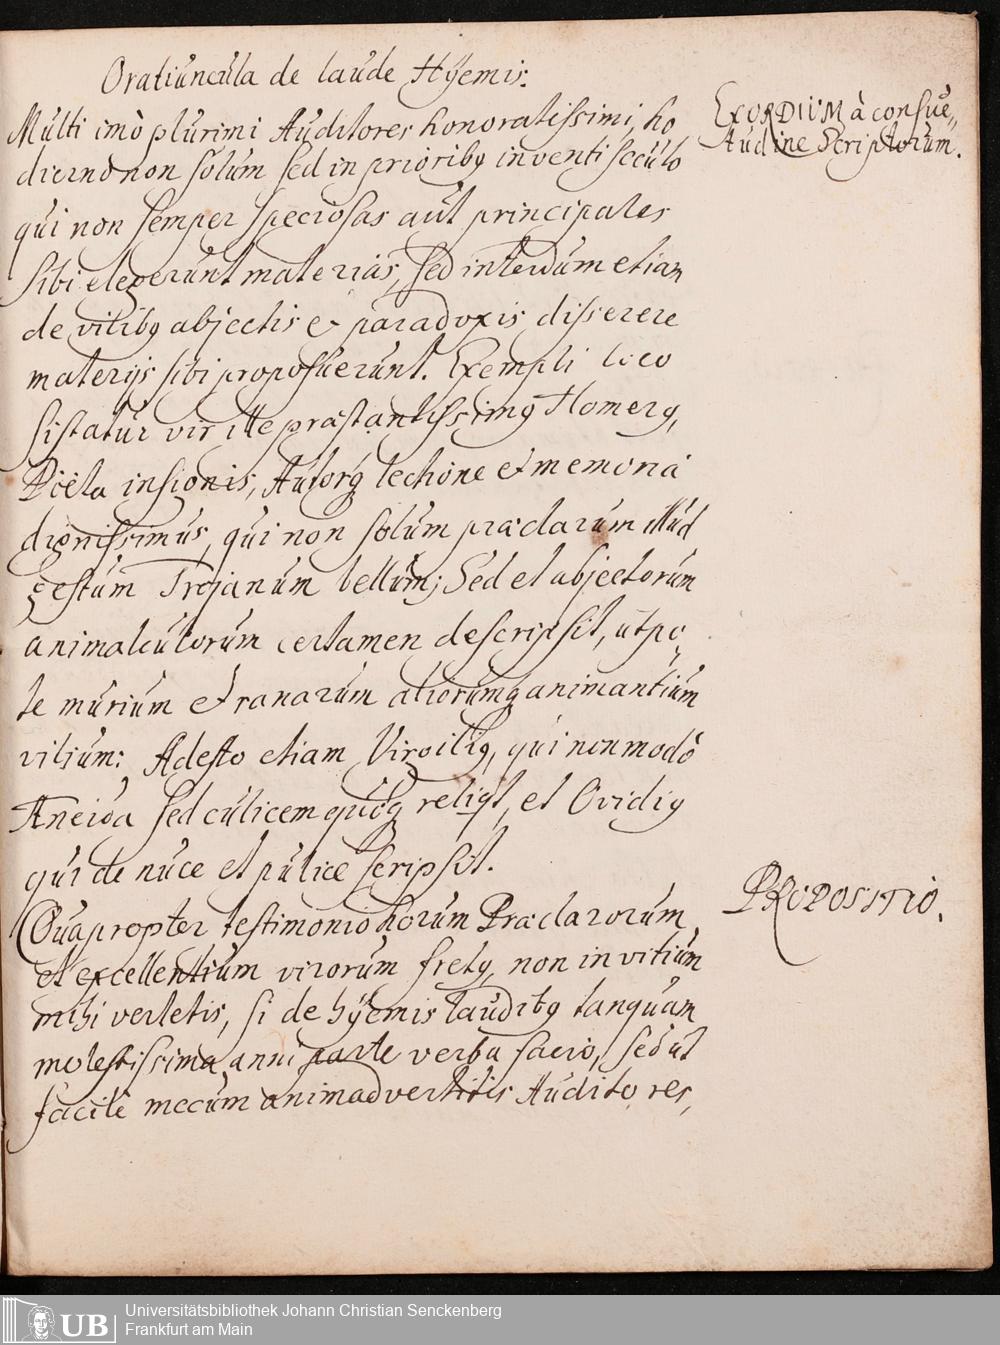 Oratiuncula de laude Hÿemis:
Multi imò plurimi Auditores honoratissimi, ho
dierno non solum sed in priorib9 inventi seculo
qui non semper speciosas aut principales
sibi elegerunt materias, sed interdum etiam
de vilib9 abjectis & paradoxis disserere
materijs sibi proposuerunt. Exempli loco
sistatur vir ille præstantissim9 Homer9,
Pöeta insignis, Autorq3 lectione et memoriâ
dignissimus, qui non solum præclarum illud
gestum Trojanum bellum; Sed et abjectorum
animalculorum certamen descripsit, utpo
te murium et ranarum aliorumq3 animantium
vilium: Adesto etiam Virgili9, qui non modò
Æneida sed culicem quoq3 reliqt, et Ovidi9
qui de nuce et pulice scripsit.
Quapropter testimonio horum Præclarorum
et excellentium virorum fret9, non in vitium
mihi vertetis, si de hÿemis laudib9 tanquam
molestissima anni parte verba facio, sed ut
facilè mecum animadvertitis Auditores,
EXORDIUM à consue„
tudine Scriptorum.
PROPOSITIO.
Universitätsbibliothek Johann Christian Senckenberg
Frankfurt am Main
UB